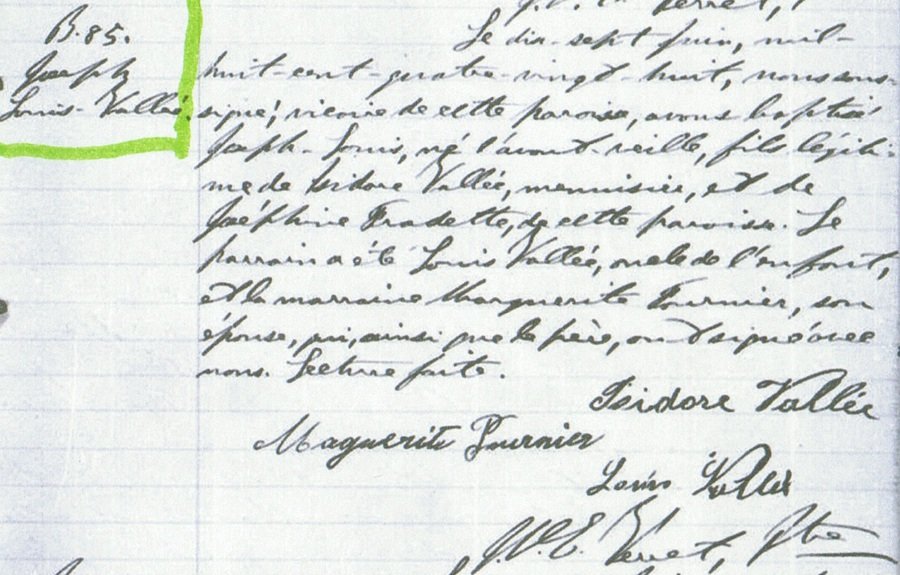 Verret,
B. 85.
Joseph
Louis-Vallée.
Le dix-sept juin, mil-
huit-cent-quatre-vingt-huit, nous sous-
signé, vicaire de cette paroisse, avons baptisé
Joseph-Louis, né l'avant-veille, fils légiti-
me de Isidore Vallée, menuisier, et de
Joséphine Fradette, de cette paroisse. Le
parrain a été Louis Vallée, oncle de l'enfant,
et la marraine Marguerite Fournier, son
épouse, qui, ainsi que le père, ont signé avec
nous. Lecture faite.
Isidore Vallée
Maguerite Fournier
Louis Vallée
J. E. Verret, Ptre